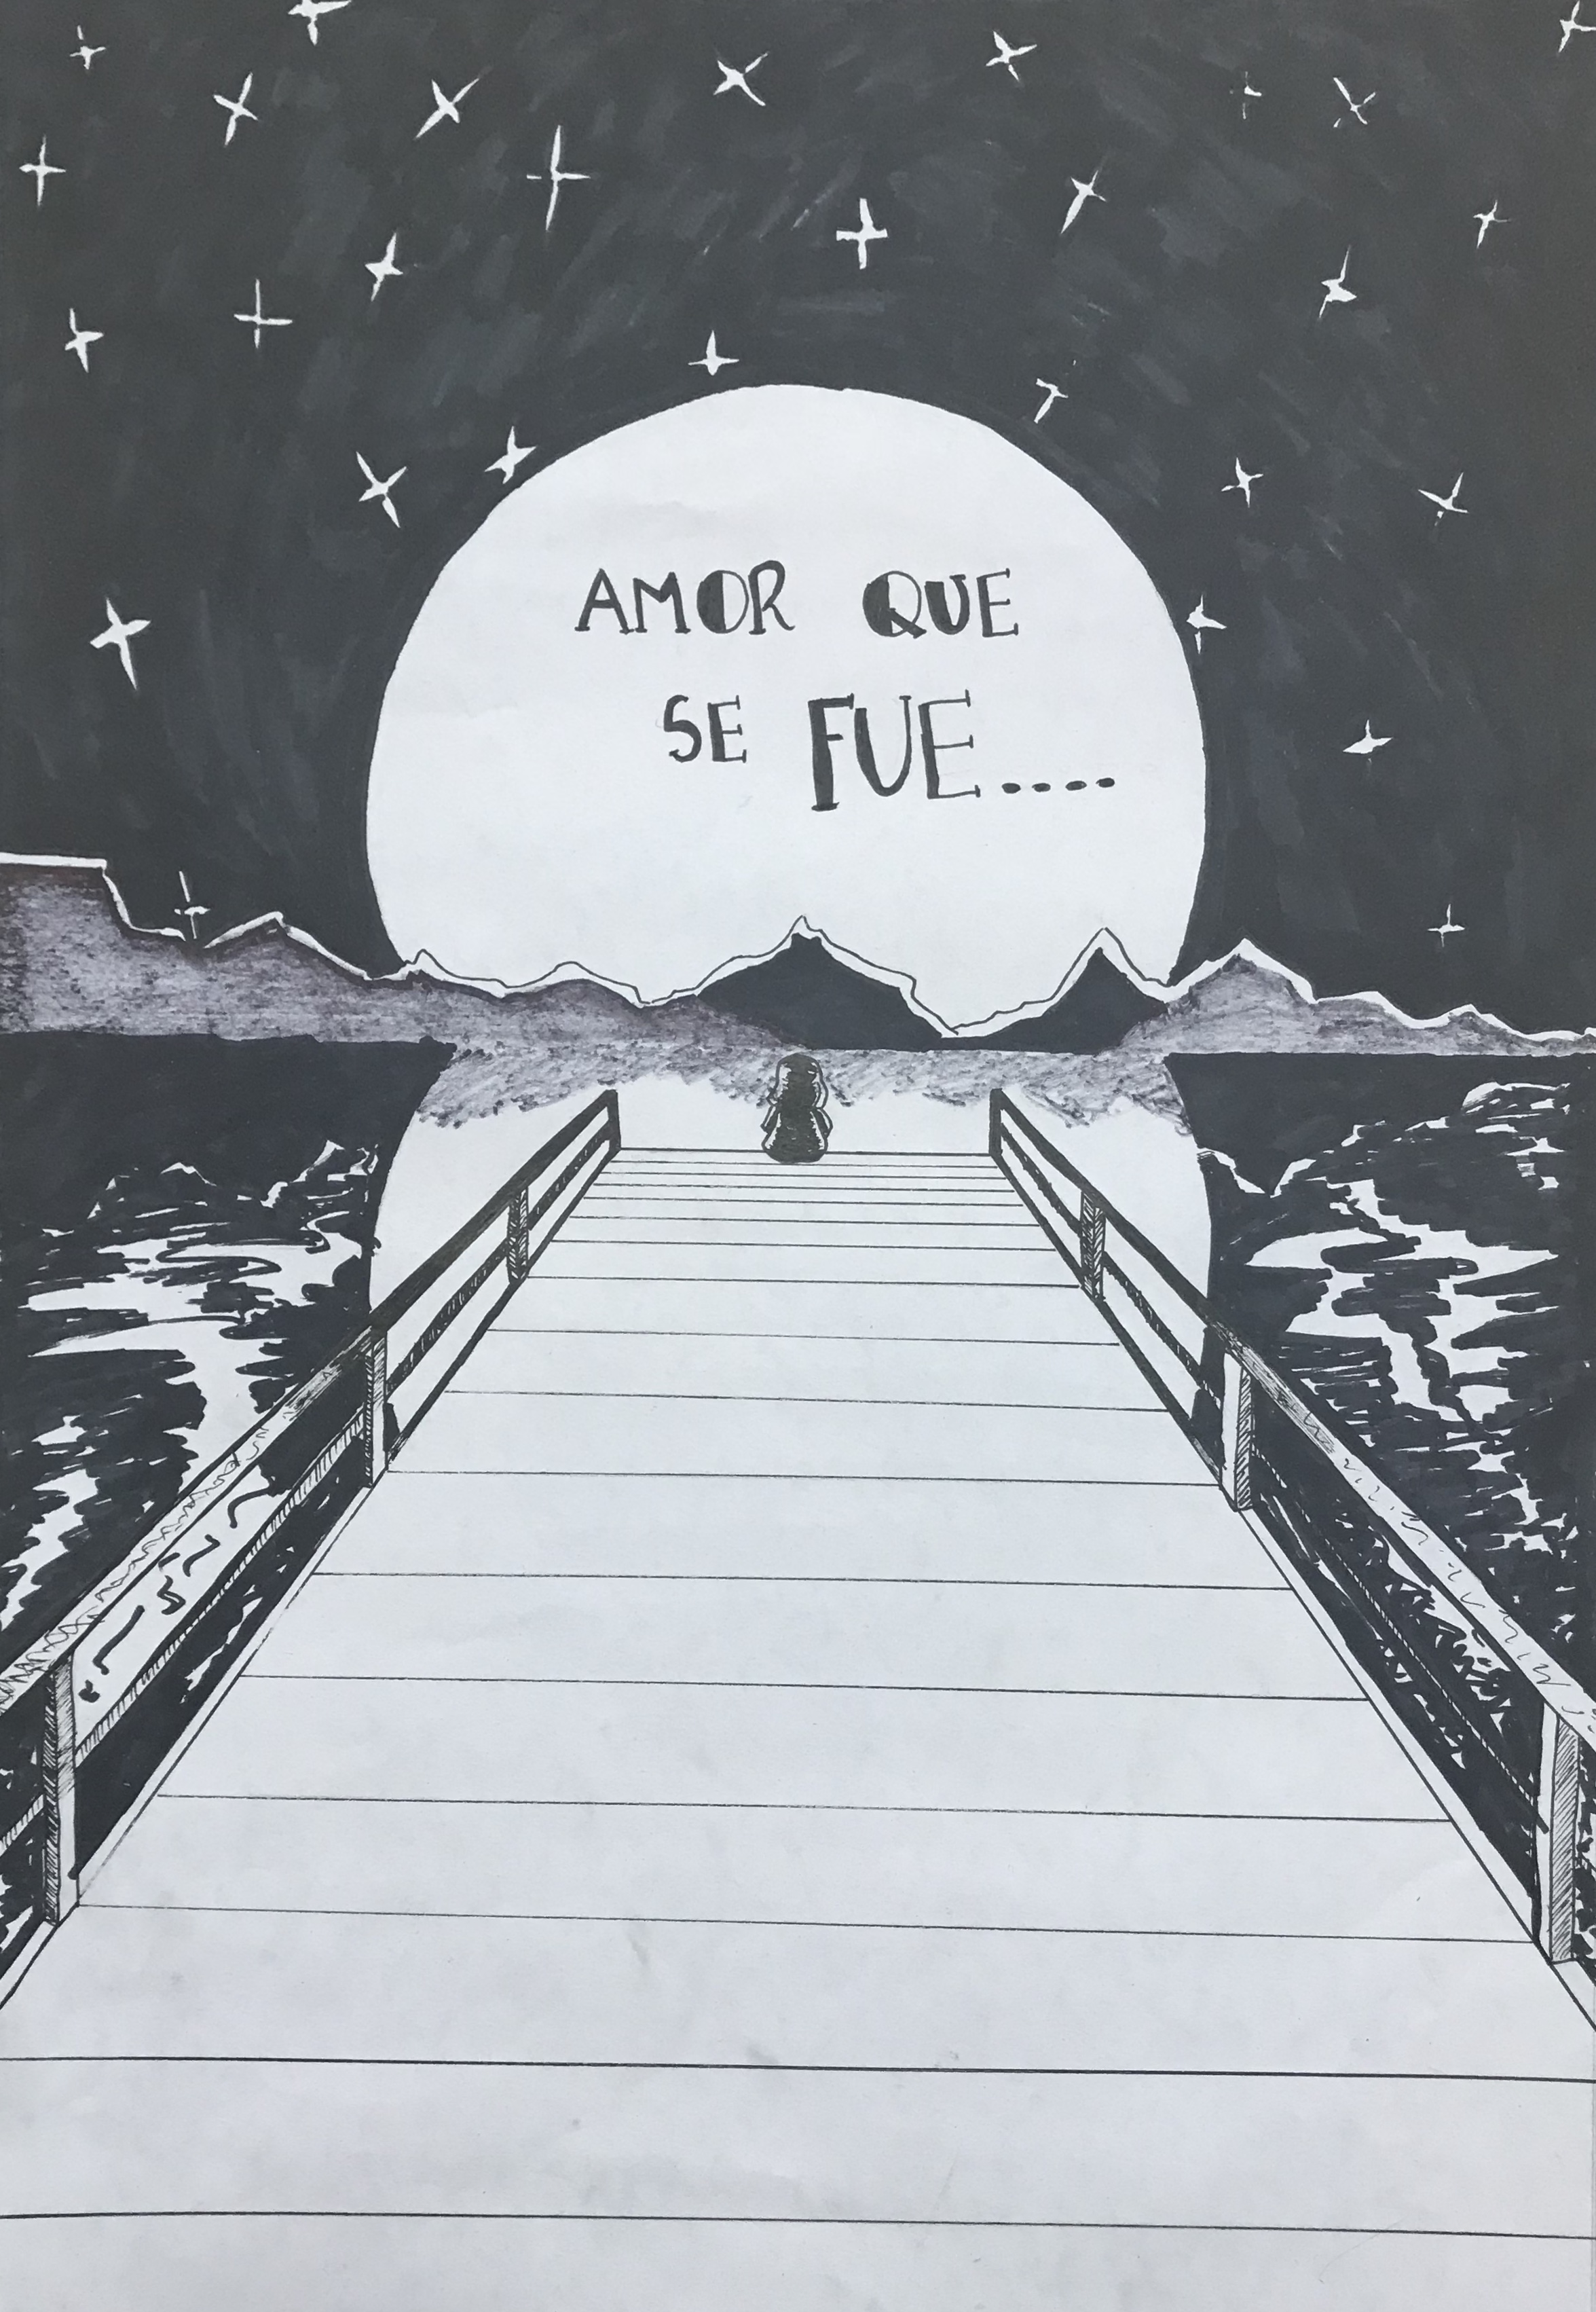 AMOR QUE
SE FUE....